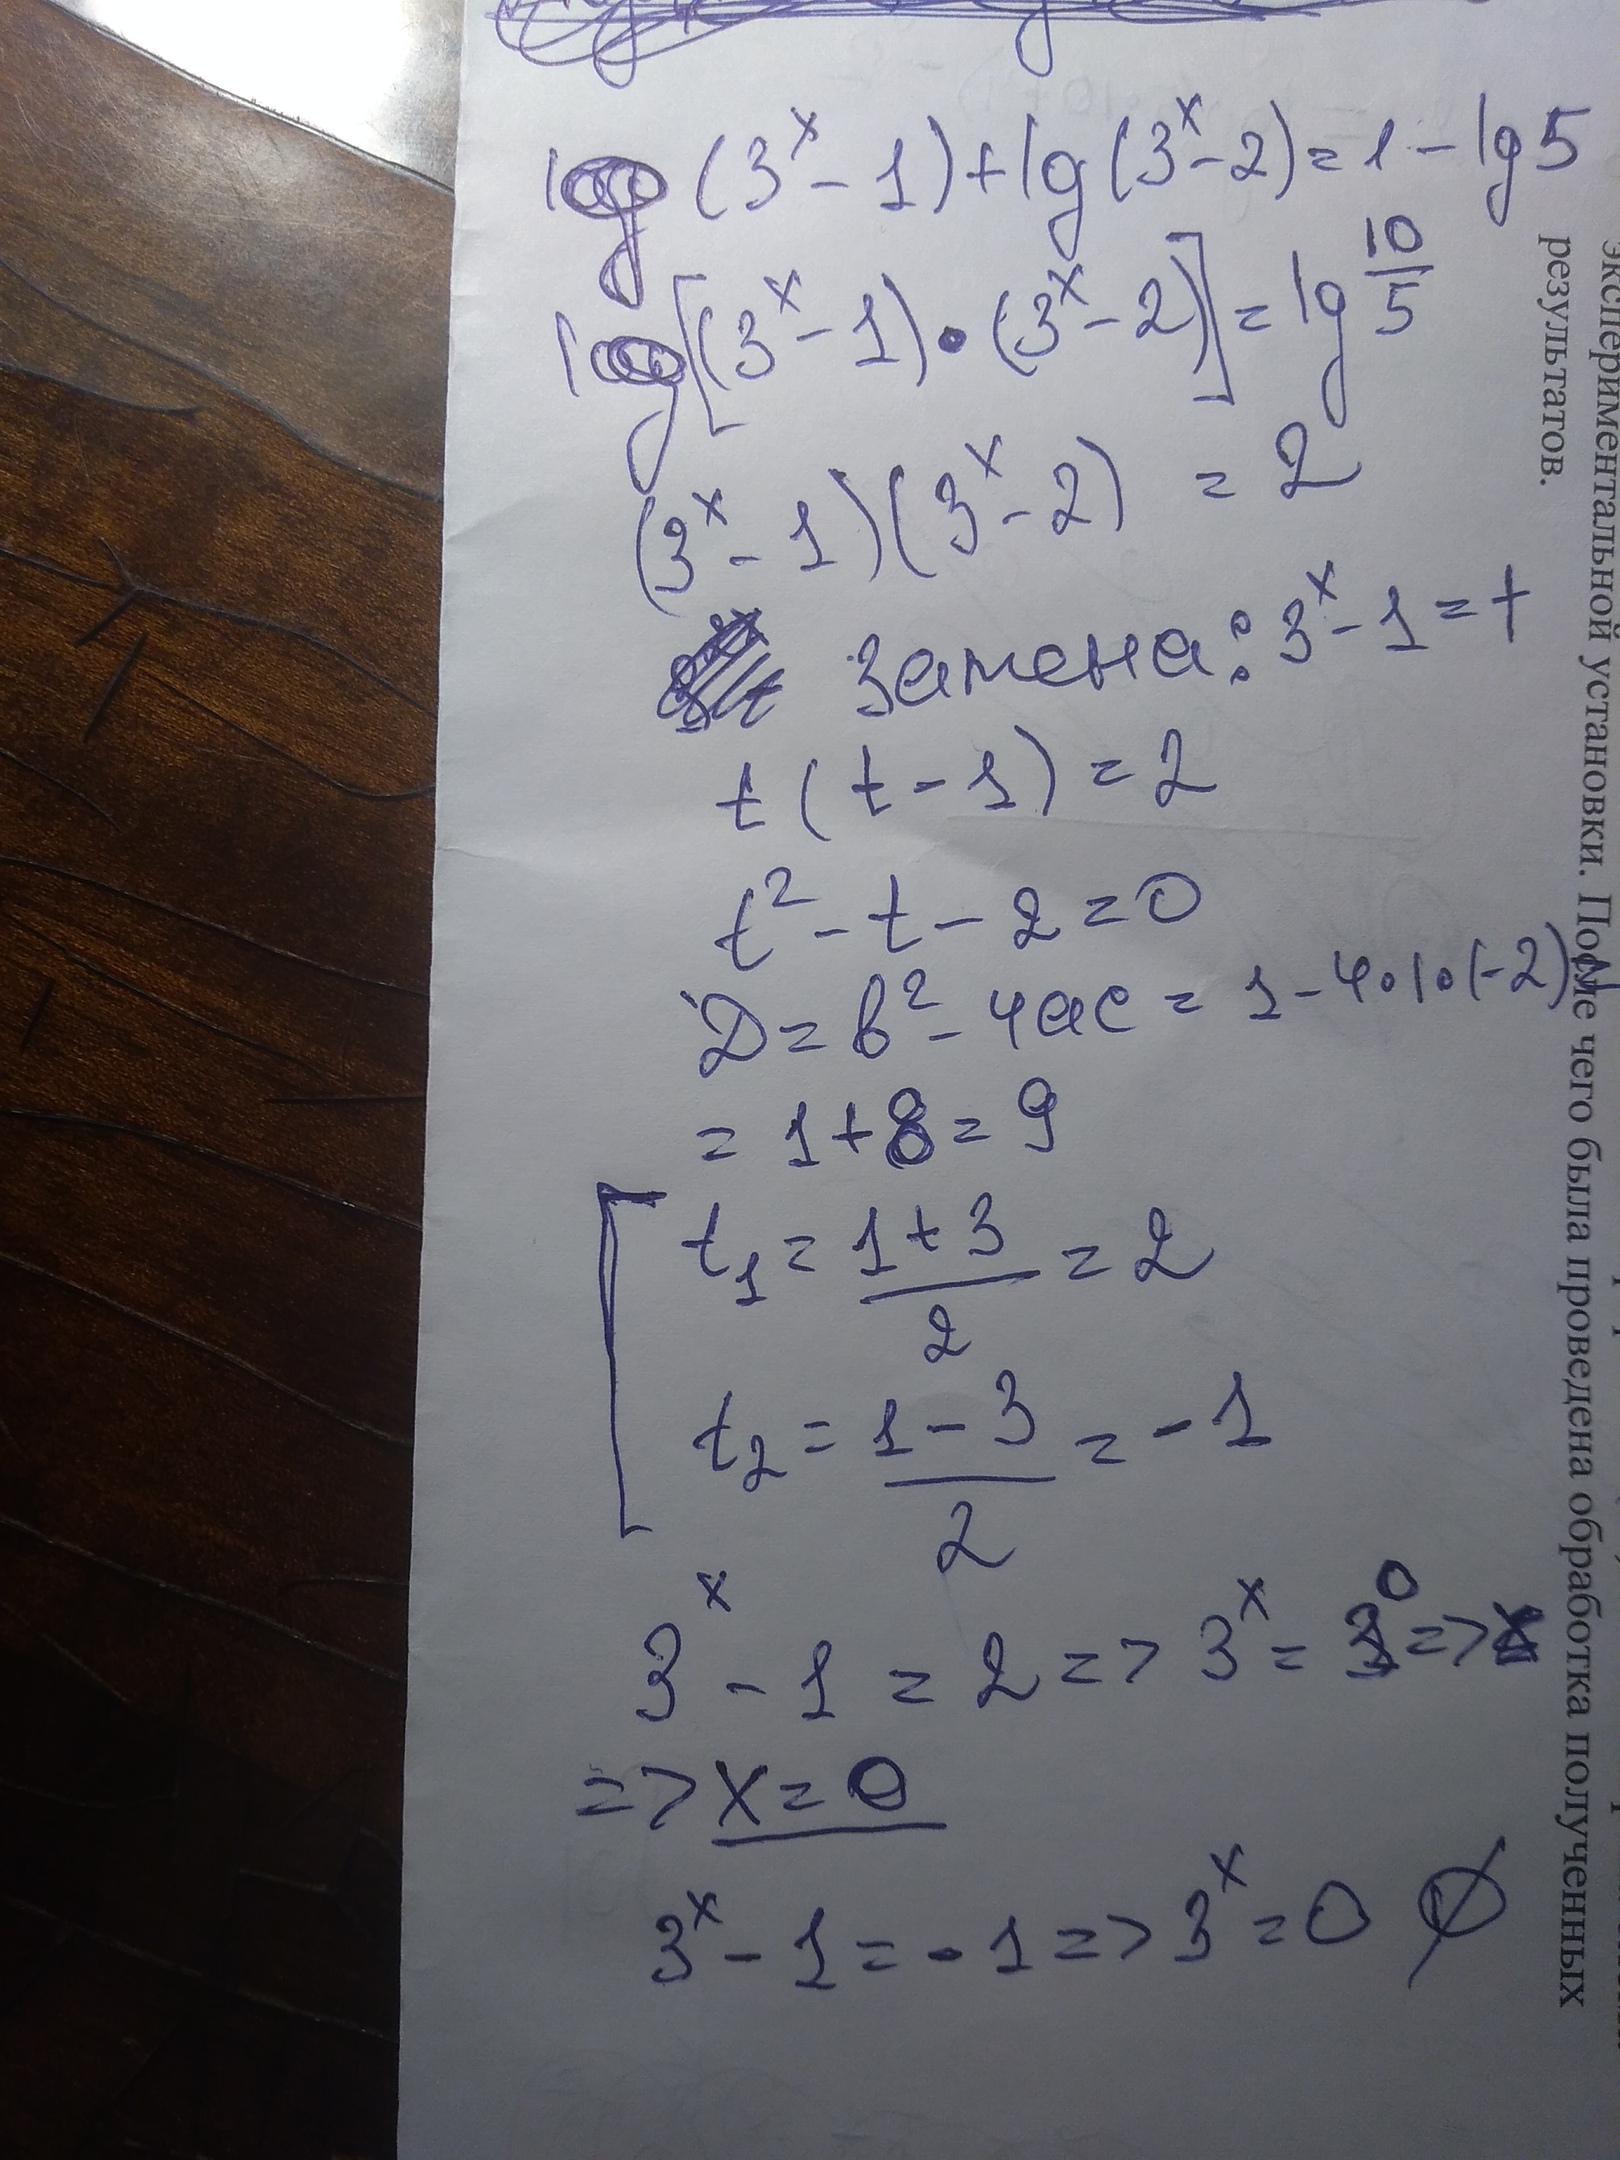 lg (3ˣ - 1) + lg (3ˣ - 2) = 1 - lg 5
lg [(3ˣ - 1) · (3ˣ - 2)] = lg 10/5
(3ˣ - 1)(3ˣ - 2) = 2
замена: 3ˣ - 1 = t
t (t - 1) = 2
t² - t - 2 = 0
D = b² - 4ac = 1 - 4·1·(-2) =
= 1 + 8 = 9
t₁ = (1 + 3)/2 = 2
t₂ = (1 - 3)/2 = -1
3ˣ - 1 = 2 => 3ˣ = 3⁰ =>
=> x = 0
3ˣ - 1 = -1 => 3ˣ = 0 ∅
экспериментальной установки. После чего была проведена обработка полученных
результатов.